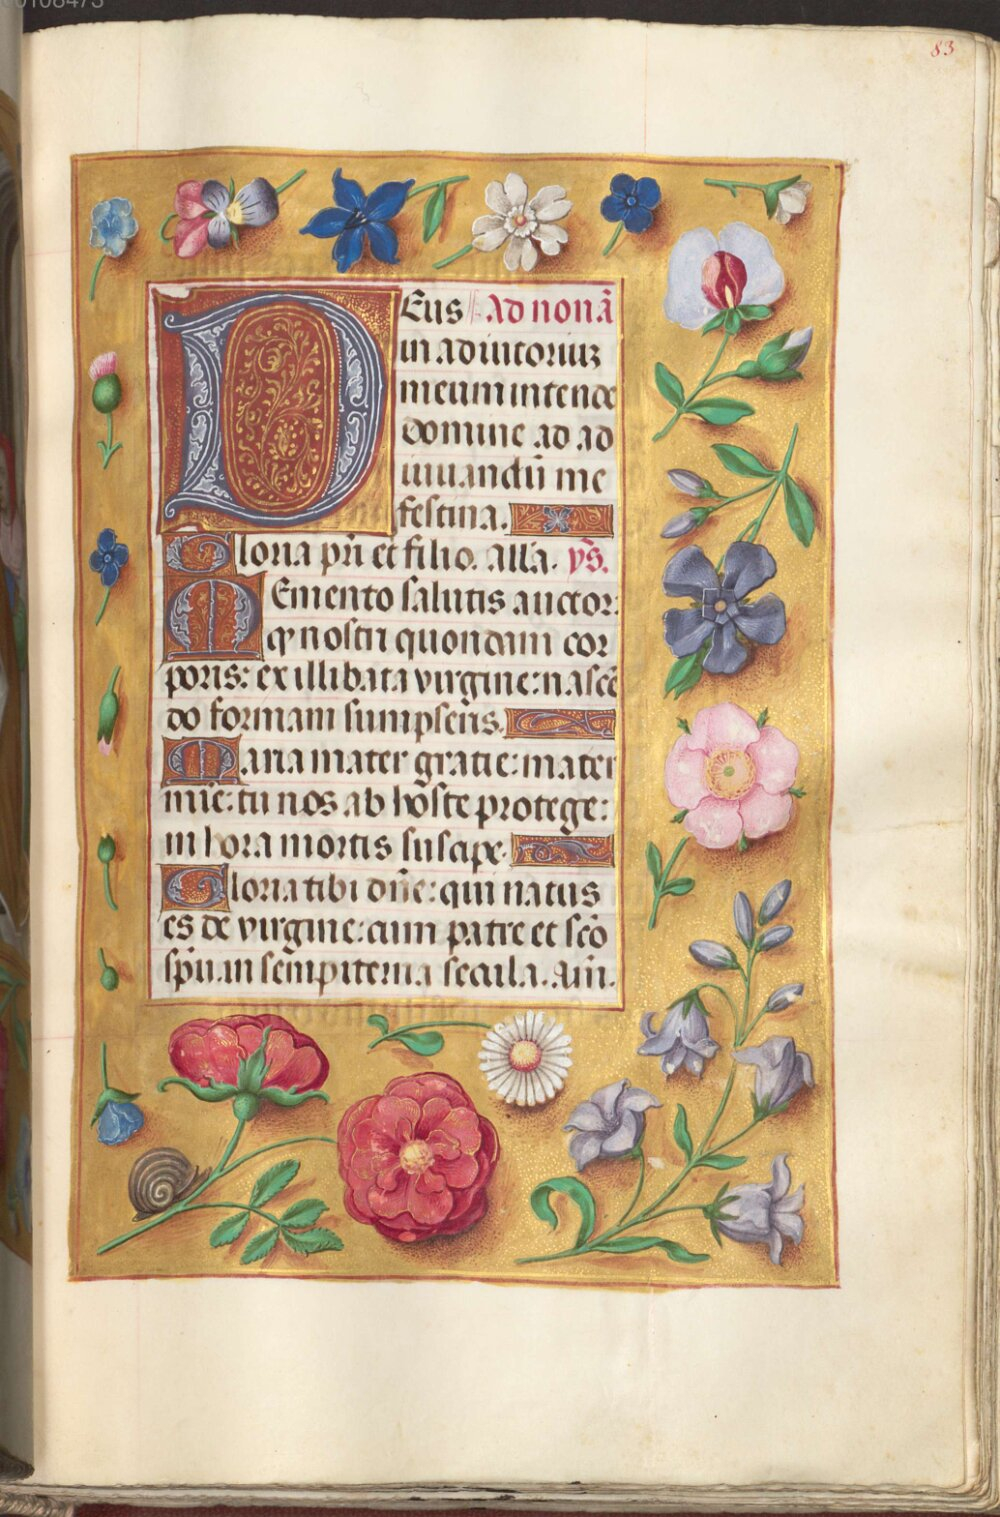 00108473
83
Deus Ad nonā
in adiutoriuȝ
meum intende
domine ad ad
iuuandū me
festina.
Gloria pr̄i et filio. alła. ỹs.
Memento salutis auctor:
qꝫ nostri quondam cor
poris: ex illibata virgine: nascē
do formam sumpseris.
Maria mater gratie: mater
mīe: tu nos ab hoste protege:
in hora mortis suscipe.
Gloria tibi dn̄e: qui natus
es de virgine: cum patre et scō
spū. in sempiterna secula. am̄.